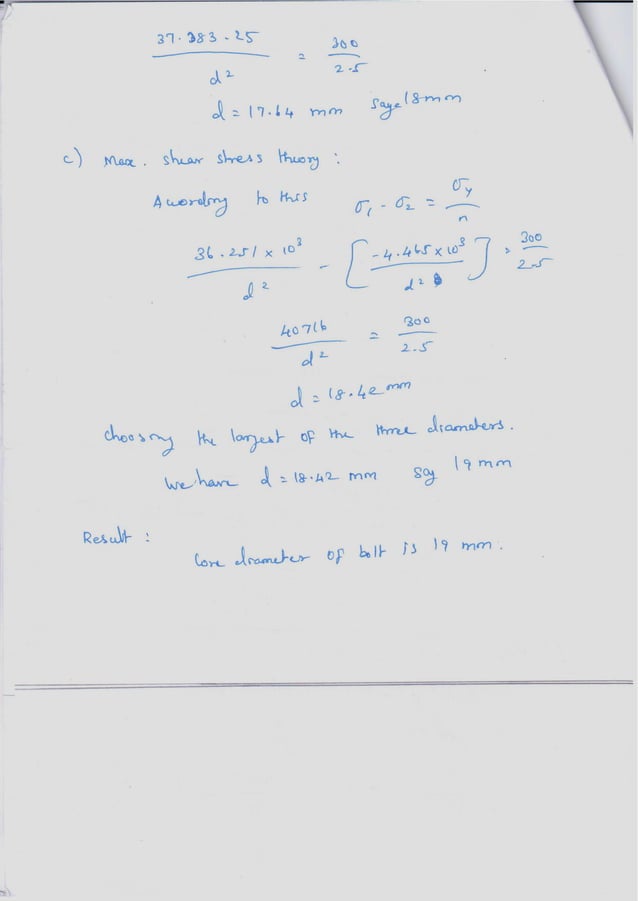 37.383.25 / d² = 300 / 2.5
d = 17.64 mm Saye 18mm
c) Max. shear stress theory :
According to this σ₁ - σ₂ = σy / n
36.251 x 10³ / d² - [ -4.465 x 10³ / d² ] = 300 / 2.5
40716 / d² = 300 / 2.5
d = 18.42 mm
choosing the largest of the three diameters.
We have d = 18.42 mm Say 19 mm
Result :
Core diameter of bolt is 19 mm.